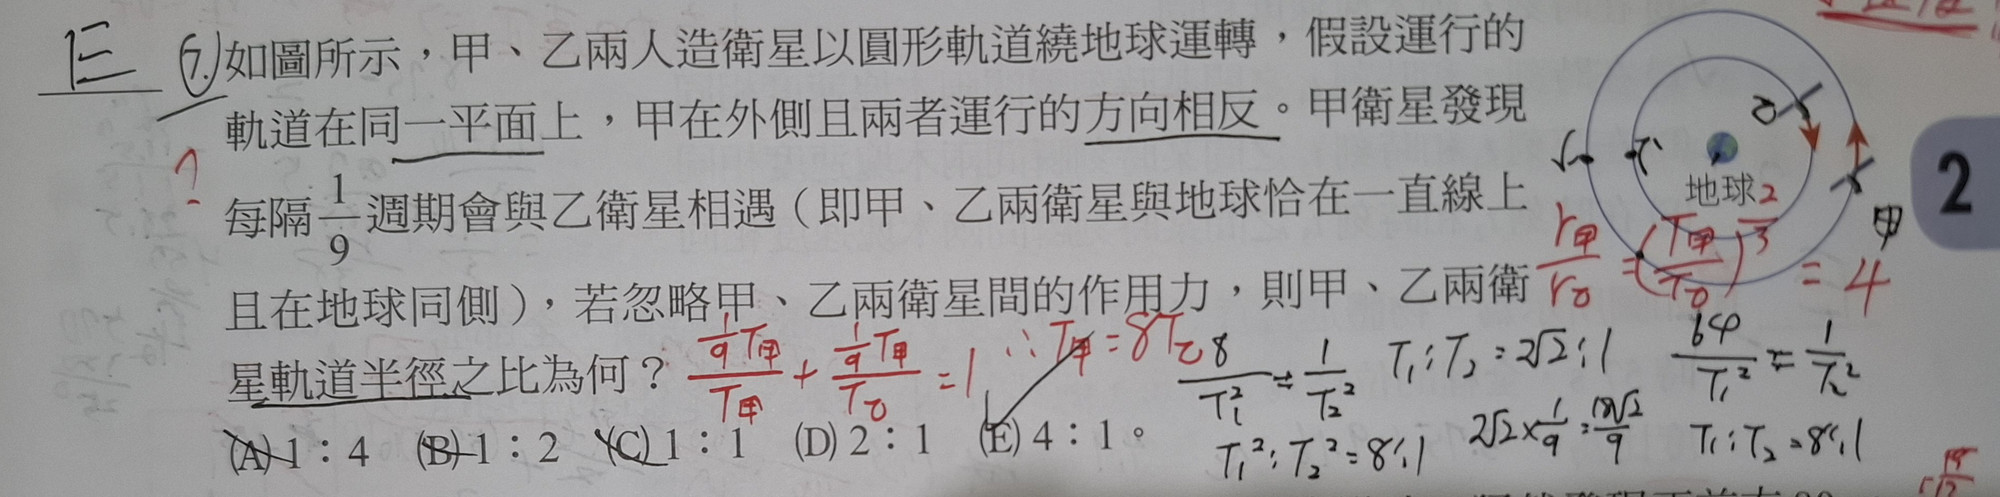 E 7. 如圖所示，甲、乙兩人造衛星以圓形軌道繞地球運轉，假設運行的
軌道在同一平面上，甲在外側且兩者運行的方向相反。甲衛星發現
?
每隔 1/9 週期會與乙衛星相遇（即甲、乙兩衛星與地球恰在一直線上
且在地球同側），若忽略甲、乙兩衛星間的作用力，則甲、乙兩衛
星軌道半徑之比為何？
(A) 1：4 (B) 1：2 (C) 1：1 (D) 2：1 (E) 4：1。
乙
地球
甲
2
r甲/r乙 = (T甲/T乙)^2/3 = 4
1/9 T甲/T甲 + 1/9 T甲/T乙 = 1 ∴ T甲 = 8T乙
8/T₁² = 1/T₂²
T₁² : T₂² = 8 : 1
T₁ : T₂ = 2√2 : 1
2√2 × 1/9 = 18√2/9
64/T₁² = 1/T₂²
T₁ : T₂ = 8 : 1